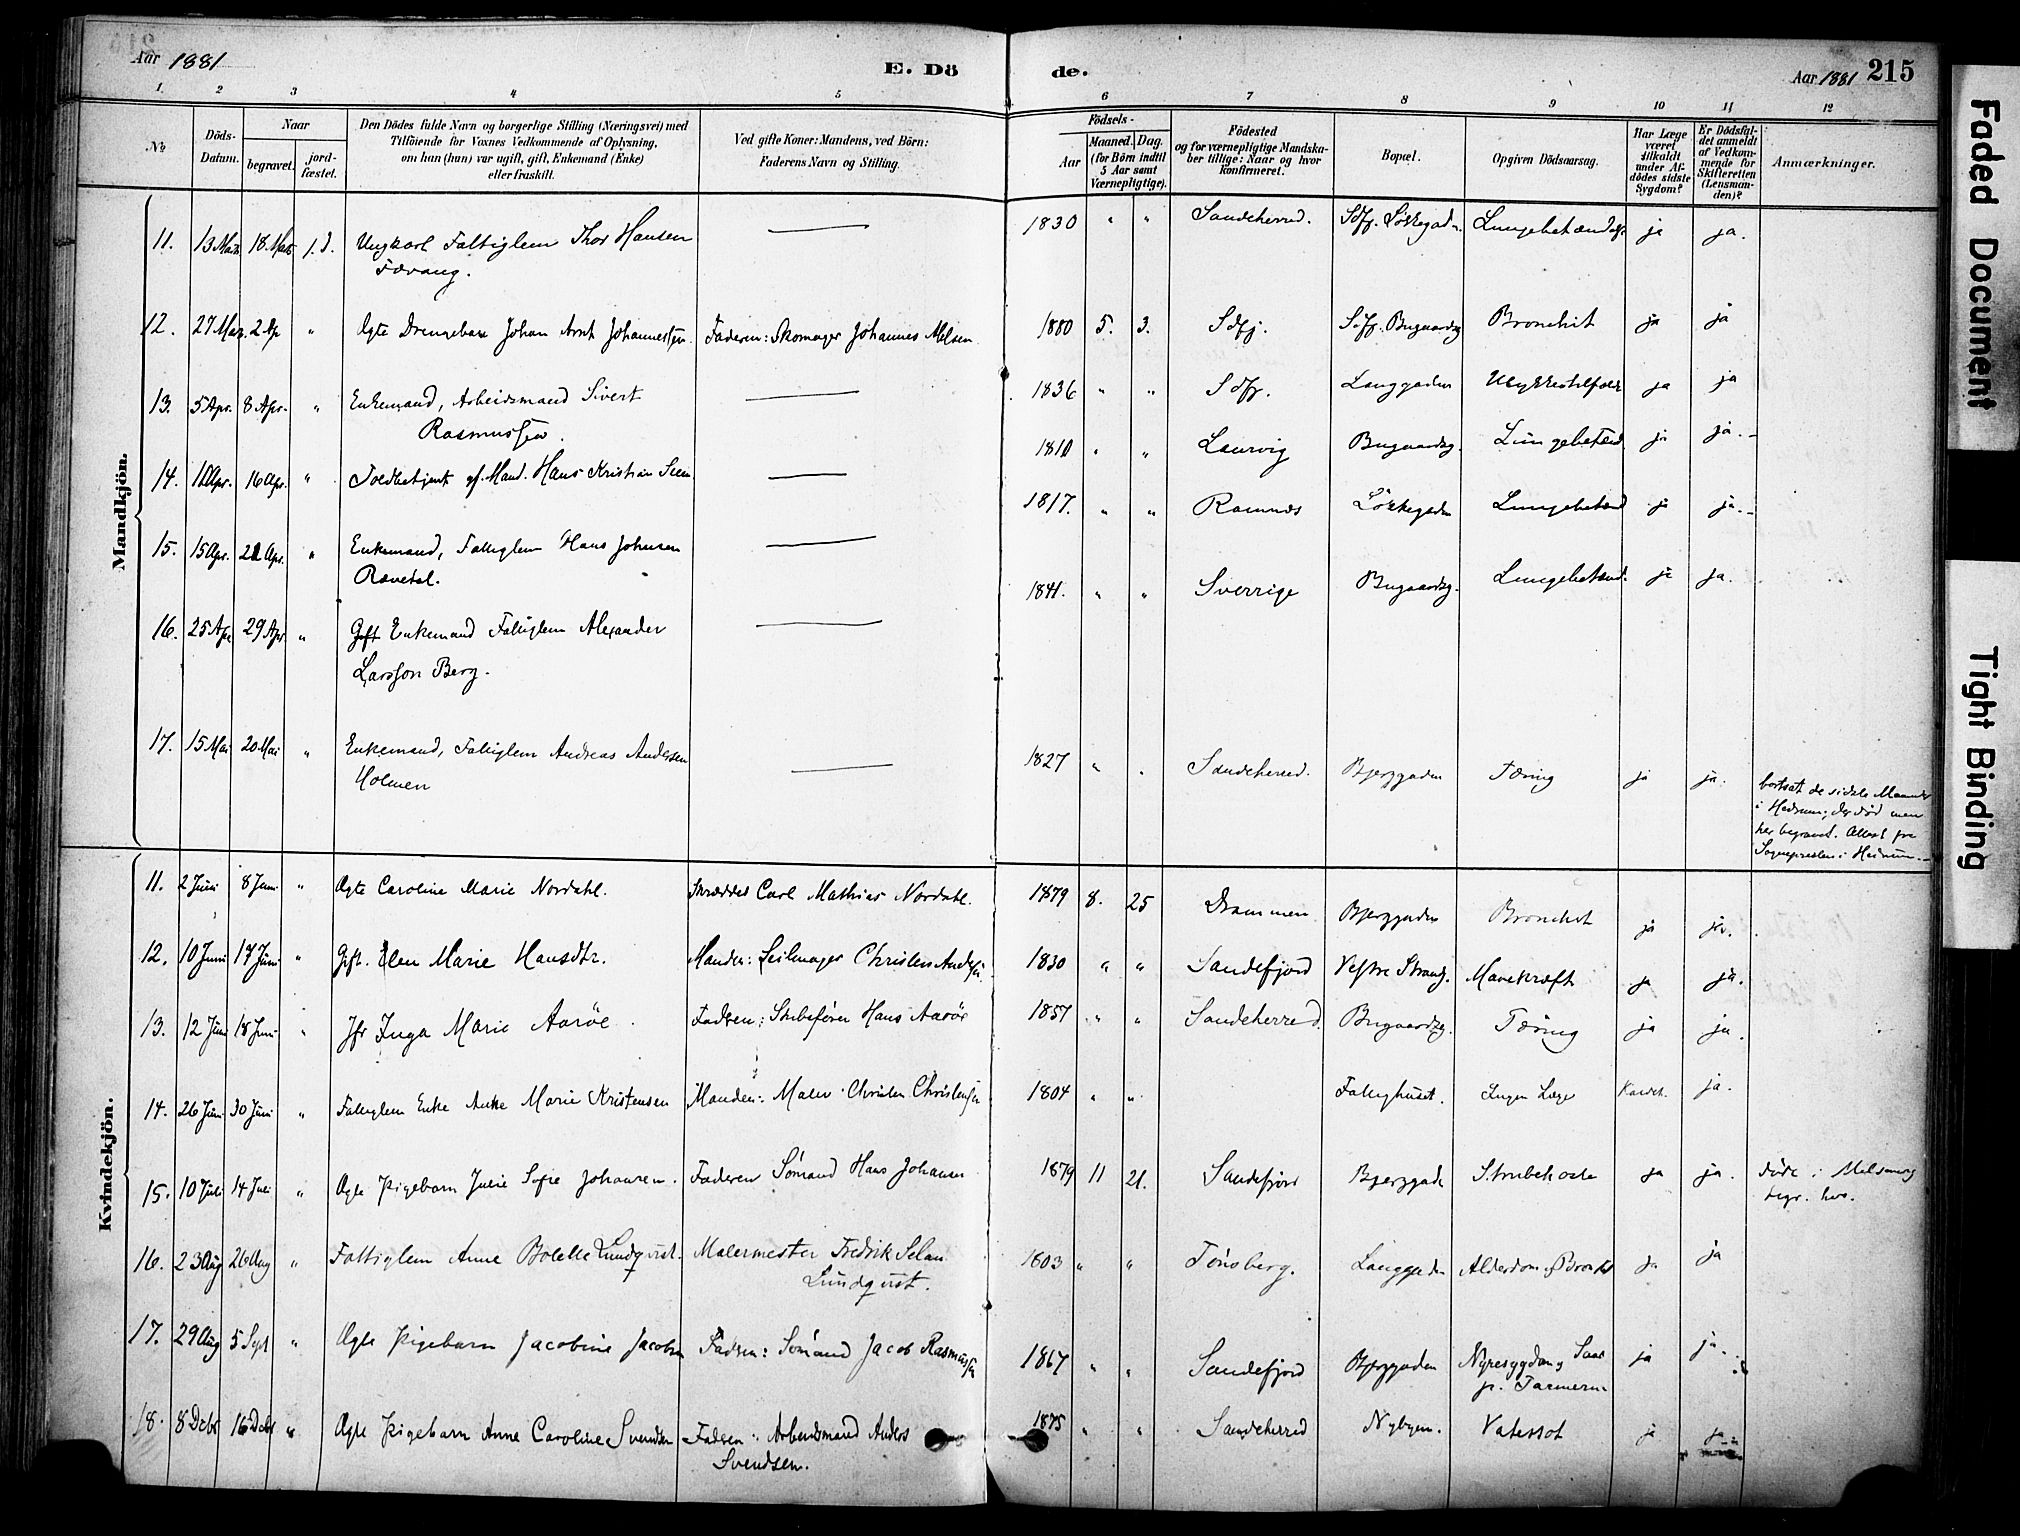 Aar 1881
E. Dö
de.
Aar 1881 215
1. 2 3 4 5 6 7 8 9 10 11 12
No
Döds-Datum.
Naar
begravet.
jord-fæstet.
Den Dödes fulde Navn og borgerlige Stilling (Næringsvei) med
Tilföiende for Voxnes Vedkommende af Oplysning,
om han (hun) var ugift, gift, Enkemand (Enke)
eller fraskilt.
Ved gifte Koner: Mandens, ved Börn:
Faderens Navn og Stilling.
Födsels-
Aar
Maaned. Dag.
(for Börn indtil
5 Aar samt
Værnepligtige).
Födested
og for værnepligtige Mandska-
ber tillige: Naar og hvor
konfirmeret.
Bopæl.
Opgiven Dödsaarsag.
Har Læge
været
tilkaldt
under Af-
dødes sidste
Sygdom?
Er Dödsfal-
det anmeldt
af Vedkom-
mende for
Skifteretten
(Lensman-
den)?
Anmærkninger.
Mandkjön.
11. 13 Marts 18. Marts j. d. Ungkarl Fattiglem Thor Hansen 1830 " " Sandeherred. Sdfj. Lökkegaden Lungebetændelse ja ja.
12. 27 Mar. 2 Ap " Ægte Drengebarn Johan Arnt Johannessen. Faderen: Skomager Johannes Melsen 1880 5. 3. Sdfj. Sdfj. Bugaardsg Bronchit ja ja
13. 5 Apr. 8 Apr. " Enkemand, Arbeidsmand Sivert
Rasmussen. 1836 " " Sdfj. Langgaden Ulykkestilfælde ja ja
14. 11 Apr. 16 Apr. " Toldbetjent gf. Mand. Hans Kristian 1810 " " Laurvig Bugaardsg. Lungebetænd. ja ja.
15. 15 Apr. 21 Apr. " Enkemand, Fattiglem Hans Johnsen
Rævetal. 1817. " " Ramnæs Lökkegaden Lungebetænd ja ja.
16. 25 Apr 29 Apr " Gift Enkemand Fattiglem Alexander
Larsson Berg. 1841. " " Sverrige Bugaardsg. Lungebetænd. ja ja.
17. 15 Mai 20 Mai " Enkemand, Fattiglem Andreas Andersen
Holmen 1827 " " Sandeherred. Bjerggaden Tæring ja ja.
bortsat de sidste Maaneder
i Hedrum; der död men
her begravet. Attest fra
Sognepresten i Hedrum.
Kvindekjön.
11. 2 Juni 8 Juni " Ægte Caroline Marie Nordahl. Skrædder Carl Mathias Nordahl. 1879 8. 25 Drammen Bjerggaden Bronchit ja ja.
12. 10 Juni 17 Juni " Gift. Elen Marie Hansdtr. Manden: Seilmager Christen Andersen. 1830 " " Sandefjord Vestre Strandg. Mavekræft ja ja.
13. 12 Juni 18 Juni " Jfr Inga Marie Aaröe. Faderen: Skibsförer Hans Aaröe 1857 " " Sandeherred. Bugaardsg. Tæring ja ja.
14. 26 Juni 30 Juni " Fattiglem Enke Anne Marie Kristensen Manden: Maler Christen Christensen 1804 " " Fattighuset. Ingen Læge ja.
15. 10 Juli 14 Juli " Ægte Pigebarn Julie Sofie Johansen. Faderen Sömand Hans Johansen 1879 11 21. Sandefjord Bjerggade Strubehoste ja ja. döde i Melsomvig
begr. her.
16. 23 Aug 26 Aug " Fattiglem Anne Bolette Lundqvist. Malermester Fredrik
Lundqvist. 1803 " " Tönsberg. Langgaden Alderdom ja ja
17. 29 Aug 5 Sept " Ægte Pigebarn Jacobine Jacobsen Faderen: Sömand Jacob Rasmussen 1867 " " Sandefjord Bjerggaden Nyresygdom og Saar
p. Tarmerne ja ja.
18. 8 Dcbr 16 Dcbr " Ægte Pigebarn Anne Caroline Svendsen Faderen: Arbeidsmand Anders
Svendsen. 1875 " " Sandeherred Nybyen. Vatersot ja ja
Faded Document
Tight Binding